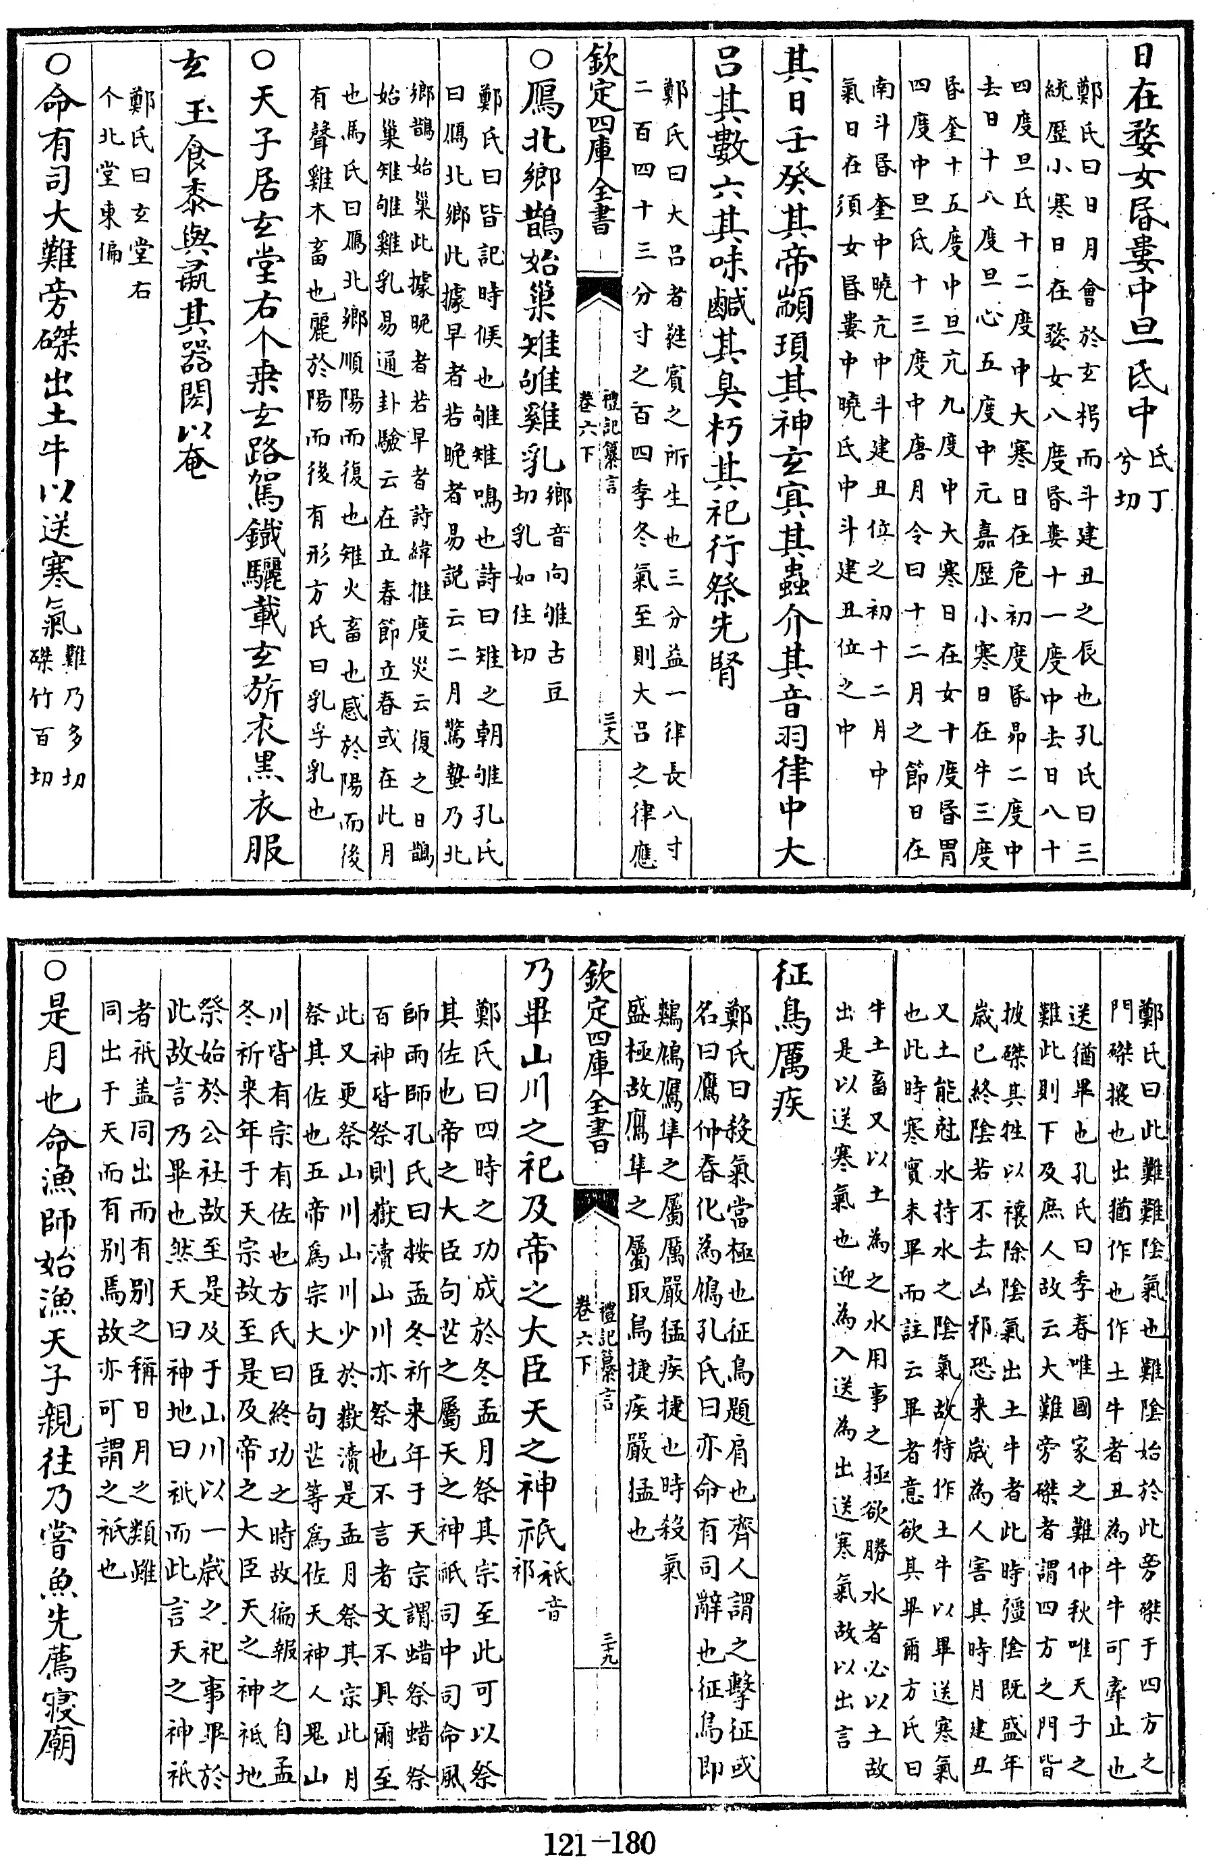 日在婺女昏婁中旦氐中氐丁
兮切
鄭氏曰日月會於玄枵而斗建丑之辰也孔氏曰三
統歷小寒日在婺女八度昏婁十一度中去日八十
四度旦氐十二度中大寒日在危初度昏昴二度中
去日十八度旦心五度中元嘉歷小寒日在牛三度
昏奎十五度中旦亢九度中大寒日在女十度昏胃
四度中旦氐十三度中唐月令曰十二月之節日在
南斗昏奎中曉亢中斗建丑位之初十二月中
氣日在須女昏婁中曉氐中斗建丑位之中
其日壬癸其帝顓頊其神玄冥其蟲介其音羽律中大
呂其數六其味鹹其臭朽其祀行祭先腎
鄭氏曰大呂者蕤賓之所生也三分益一律長八寸
二百四十三分寸之百四季冬氣至則大呂之律應
欽定四庫全書
禮記纂言
卷六下
三十八
○鴈北鄉鵲始巢雉雊雞乳鄉音向雊古豆
切乳如住切
鄭氏曰皆記時候也雊雉鳴也詩曰雉之朝雊孔氏
曰鴈北鄉此據早者若晚者易説云二月驚蟄乃北
鄉鵲始巢此據晚者若早者詩緯推度災云復之日鵲
始巢雉雊雞乳易通卦驗云在立春節立春或在此月
也馬氏曰鴈北鄉順陽而復也雉火畜也感於陽而後
有聲雞木畜也麗於陽而後有形方氏曰乳孚乳也
○天子居玄堂右个乗玄路駕鐵驪載玄旂衣黒衣服
玄玉食黍與彘其器閎以奄
鄭氏曰玄堂右
个北堂東偏
○命有司大難旁磔出土牛以送寒氣難乃多切
磔竹百切
鄭氏曰此難難隂氣也難隂始於此旁磔于四方之
門磔攘也出猶作也作土牛者丑為牛牛可牽止也
送猶畢也孔氏曰季春唯國家之難仲秋唯天子之
難此則下及庶人故云大難旁磔者謂四方之門皆
披磔其牲以禳除隂氣出土牛者此時彊隂既盛年
歲已終隂若不去凶邪恐来歲為人害其時月建丑
又土能尅水持水之隂氣故特作土牛以畢送寒氣
也此時寒實未畢而註云畢者意欲其畢爾方氏曰
牛土畜又以土為之水用事之極欲勝水者必以土故
出是以送寒氣也迎為入送為出送寒氣故以出言
征鳥厲疾
鄭氏曰殺氣當極也征鳥題肩也齊人謂之擊征或
名曰鷹仲春化為鳩孔氏曰亦命有司辭也征鳥即
鷞鳩鷹隼之屬厲嚴猛疾捷也時殺氣
盛極故鷹隼之屬取鳥捷疾嚴猛也
欽定四庫全書
禮記纂言
卷六下
三十九
乃畢山川之祀及帝之大臣天之神祇祇音
祁
鄭氏曰四時之功成於冬孟月祭其宗至此可以祭
其佐也帝之大臣句芒之屬天之神祇司中司命風
師雨師孔氏曰按孟冬祈来年于天宗謂蜡祭蜡祭
百神皆祭則嶽瀆山川亦祭也不言者文不具爾至
此又更祭山川山川少於嶽瀆是孟月祭其宗此月
祭其佐也五帝爲宗大臣句芒等爲佐天神人鬼山
川皆有宗有佐也方氏曰終功之時故徧報之自孟
冬祈来年于天宗故至是及帝之大臣天之神祗地
祭始於公社故至是及于山川以一歳之祀事畢於
此故言乃畢也然天曰神地曰祇而此言天之神祇
者祇盖同出而有别之稱日月之類雖
同出于天而有别焉故亦可謂之祇也
○是月也命漁師始漁天子親往乃嘗魚先薦寢廟
121-180